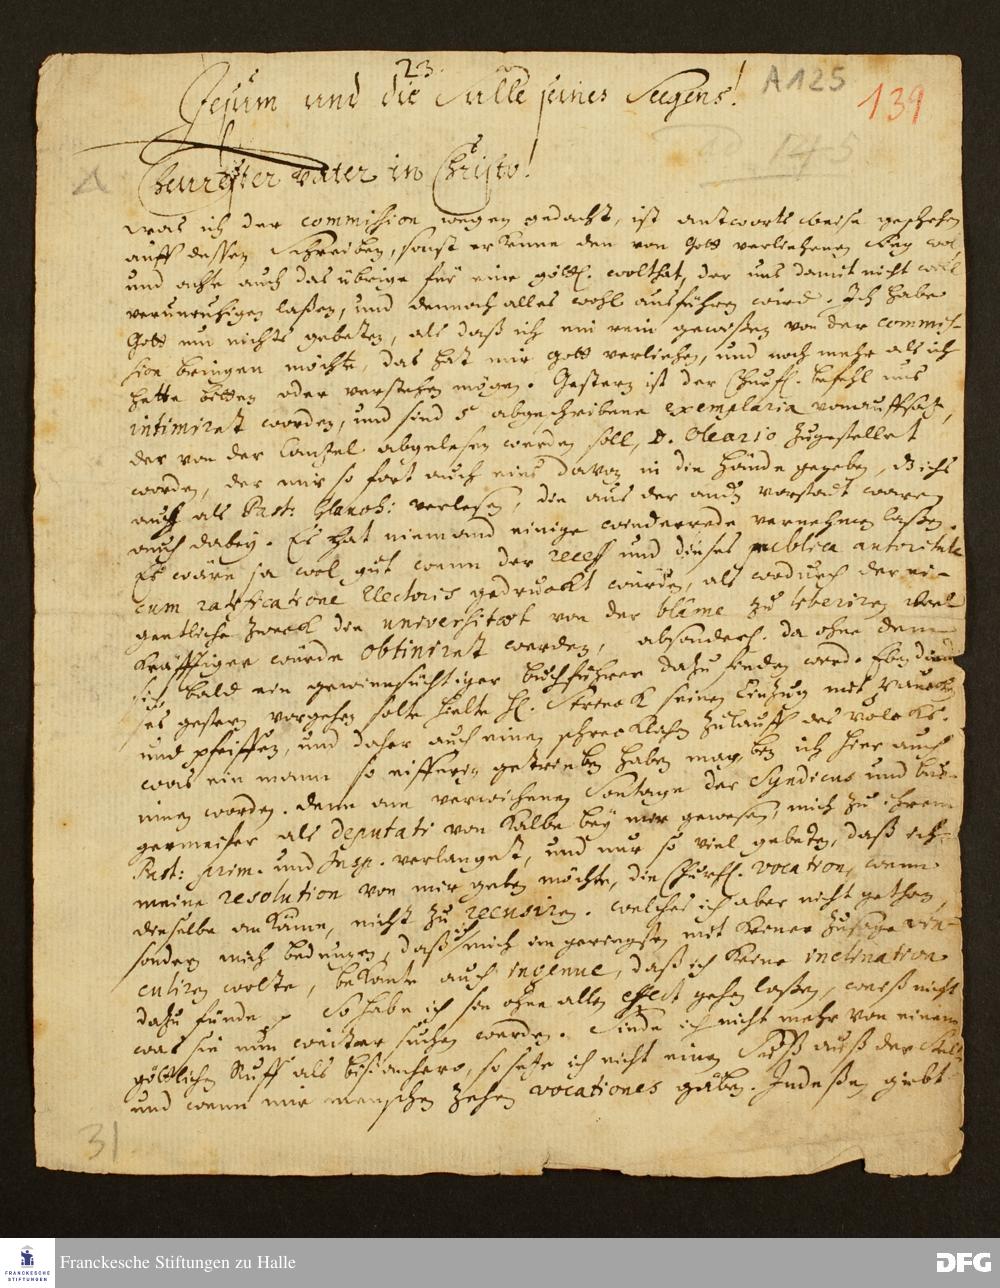 23.
A125
139
Jesum und die Fülle seines Seegens!
Theurester Vater in Christo!
Was ich der commission wegen gedacht, ist antworts weise geschehen
auff dessen Schreiben, sonst erkenne den von Gott verliehenen Sieg wol
und achte auch das übrige für eine göttl. wolthat, der uns damit nicht wird
verunruhigen laßen, und dennoch alles wohl ausführen wird. Ich habe
Gott um nichts gebeten, als daß ich ein rein gewißen von der commis-
sion bringen möchte, das hat mir Gott verliehen, und noch mehr als ich
hette bitten oder verstehen mögen. Gestern ist der Churfl. befehl uns
intimiret worden, und sind 5 abgeschribene exemplaria vom auffsatz,
der von der Canzel abgelesen werden soll, D. Oleario zugestellet
worden, der mir so fort auch eins davon in die hände gegeben, ichs
auch als Past: Glauch: verlesen, die aus der vorstadt waren
auch dabey. Es hat niemand einige wiederrede vernehmen laßen.
Es wäre ja wol gut wenn der recess und dieses publica autoritate
cum ratificatione Electoris gedruckt würden, als wodurch der ei-
gentliche zweck die universitaet von der blâme zu liberiren viel
kräfftiger würde obtiniret werden, absonderl. da ohne dem
sich bald ein gewinnsüchtiger buchführer dazu finden werd. Eben da
ses gestern vorgehen solte hielte H. Stenck seinen Einzug mit Paucken
und pfeiffen, und daher auch einen schrecklichen zulauff des volcks.
was ein mann so eifferig getrieben haben mag, bin ich hier auch
innen worden. denn am verwichenen Sontage der Syndicus und bur-
germeister als deputati von Kalbe bey mir gewesen, mich zu ihrem
Past: prim. und Insp. verlanget, und nur so viel gebeten, daß ich
meine resolution von mir geben möchte, die Churfl. vocation, wenn
dieselbe ankäme, nicht zu recusiren. welches ich aber nicht gethan,
sondern mich bedungen, daß ich mich im geringsten mit keiner zusage vin-
culiren wolte, bekante auch ingenue, daß ich keine inclination
dazu fünde p So habe ich sie ohne allen effect gehen laßen, weiß nicht
was sie nun weiter suchen werden. Finde ich nicht mehr von einem
göttlichen Ruff als bißanhero, so setze ich nicht einen Fuß auß der Stelle
und wenn mir menschen zehen vocationes gäben. Indeßen giebt
31
Franckesche Stiftungen zu Halle
FRANCKESCHE
STIFTUNGEN
DFG